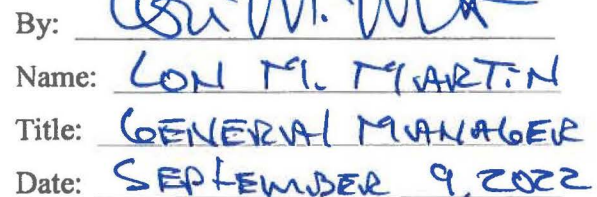 By:
Name: LON M. MARTIN
Title: GENERAL MANAGER
Date: SEPTEMBER 9, 2022